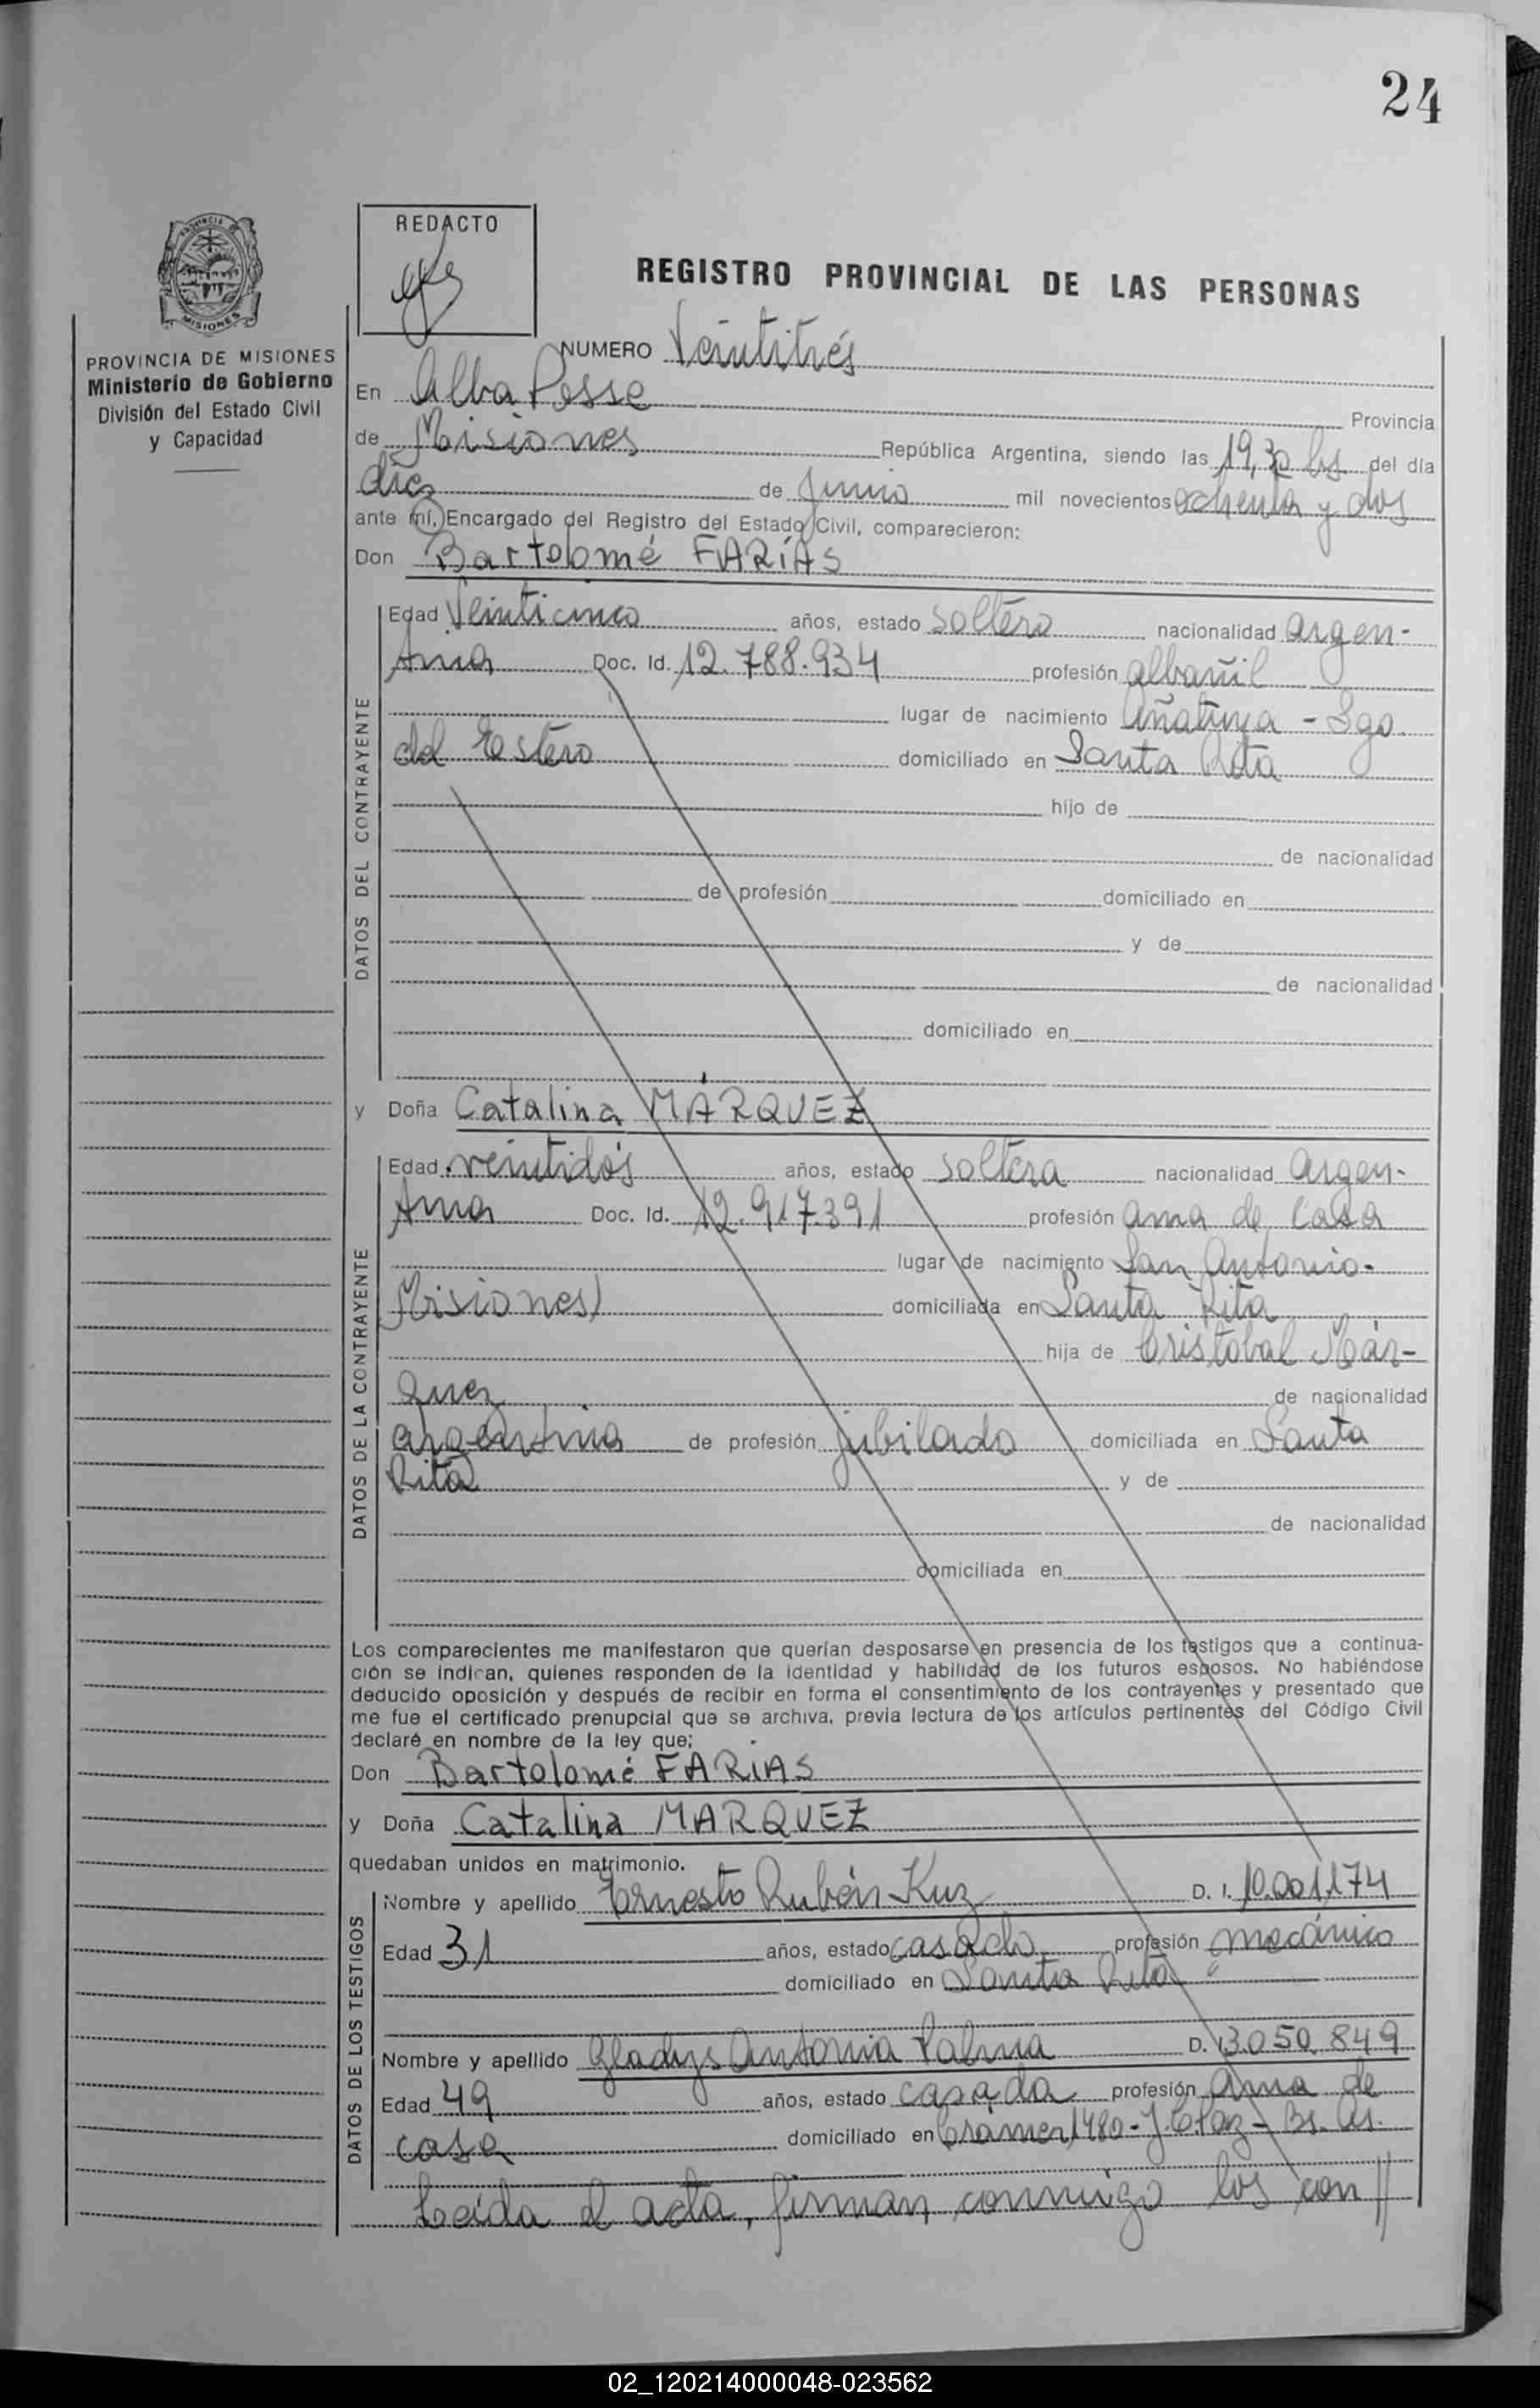 24
REDACTO
PROVINCIA DE MISIONES
Ministerio de Gobierno
División del Estado Civil
y Capacidad
REGISTRO PROVINCIAL DE LAS PERSONAS
NUMERO Veintitrés
En Alba Posse Provincia
de Misiones República Argentina, siendo las 19,30 hs del día
diez de Junio mil novecientos ochenta y dos
ante mí, Encargado del Registro del Estado Civil, comparecieron:
Don Bartolomé FARÍAS
DATOS DEL CONTRAYENTE
Edad Veinticinco años, estado soltero nacionalidad argen-
tina Doc. Id. 12.788.934 profesión albañil
lugar de nacimiento Añatuya - Sgo.
del Estero domiciliado en Santa Rita
hijo de
de nacionalidad
de profesión domiciliado en
y de
de nacionalidad
domiciliado en
y Doña Catalina MÁRQUEZ
DATOS DE LA CONTRAYENTE
Edad veintidós años, estado soltera nacionalidad argen-
tina Doc. Id. 12.917.391 profesión ama de casa
lugar de nacimiento San Antonio-
Misiones) domiciliada en Santa Rita
hija de Cristobal Már-
quez de nacionalidad
argentina de profesión jubilado domiciliada en Santa
Rita y de
de nacionalidad
domiciliada en
Los comparecientes me manifestaron que querían desposarse en presencia de los testigos que a continua-
ción se indican, quienes responden de la identidad y habilidad de los futuros esposos. No habiéndose
deducido oposición y después de recibir en forma el consentimiento de los contrayentes y presentado que
me fue el certificado prenupcial que se archiva, previa lectura de los artículos pertinentes del Código Civil
declaré en nombre de la ley que;
Don Bartolomé FARIAS
y Doña Catalina MARQUEZ
quedaban unidos en matrimonio.
DATOS DE LOS TESTIGOS
Nombre y apellido Ernesto Rubén Kuz D. I. 10.001.174
Edad 31 años, estado casado profesión mecánico
domiciliado en Santa Rita
Nombre y apellido Gladys Antonia Palma D. 3.050.849
Edad 49 años, estado casada profesión ama de
casa domiciliado en Crámer 1480 - Bs. As.
Leida el acta, firman conmigo los con //
02_120214000048-023562